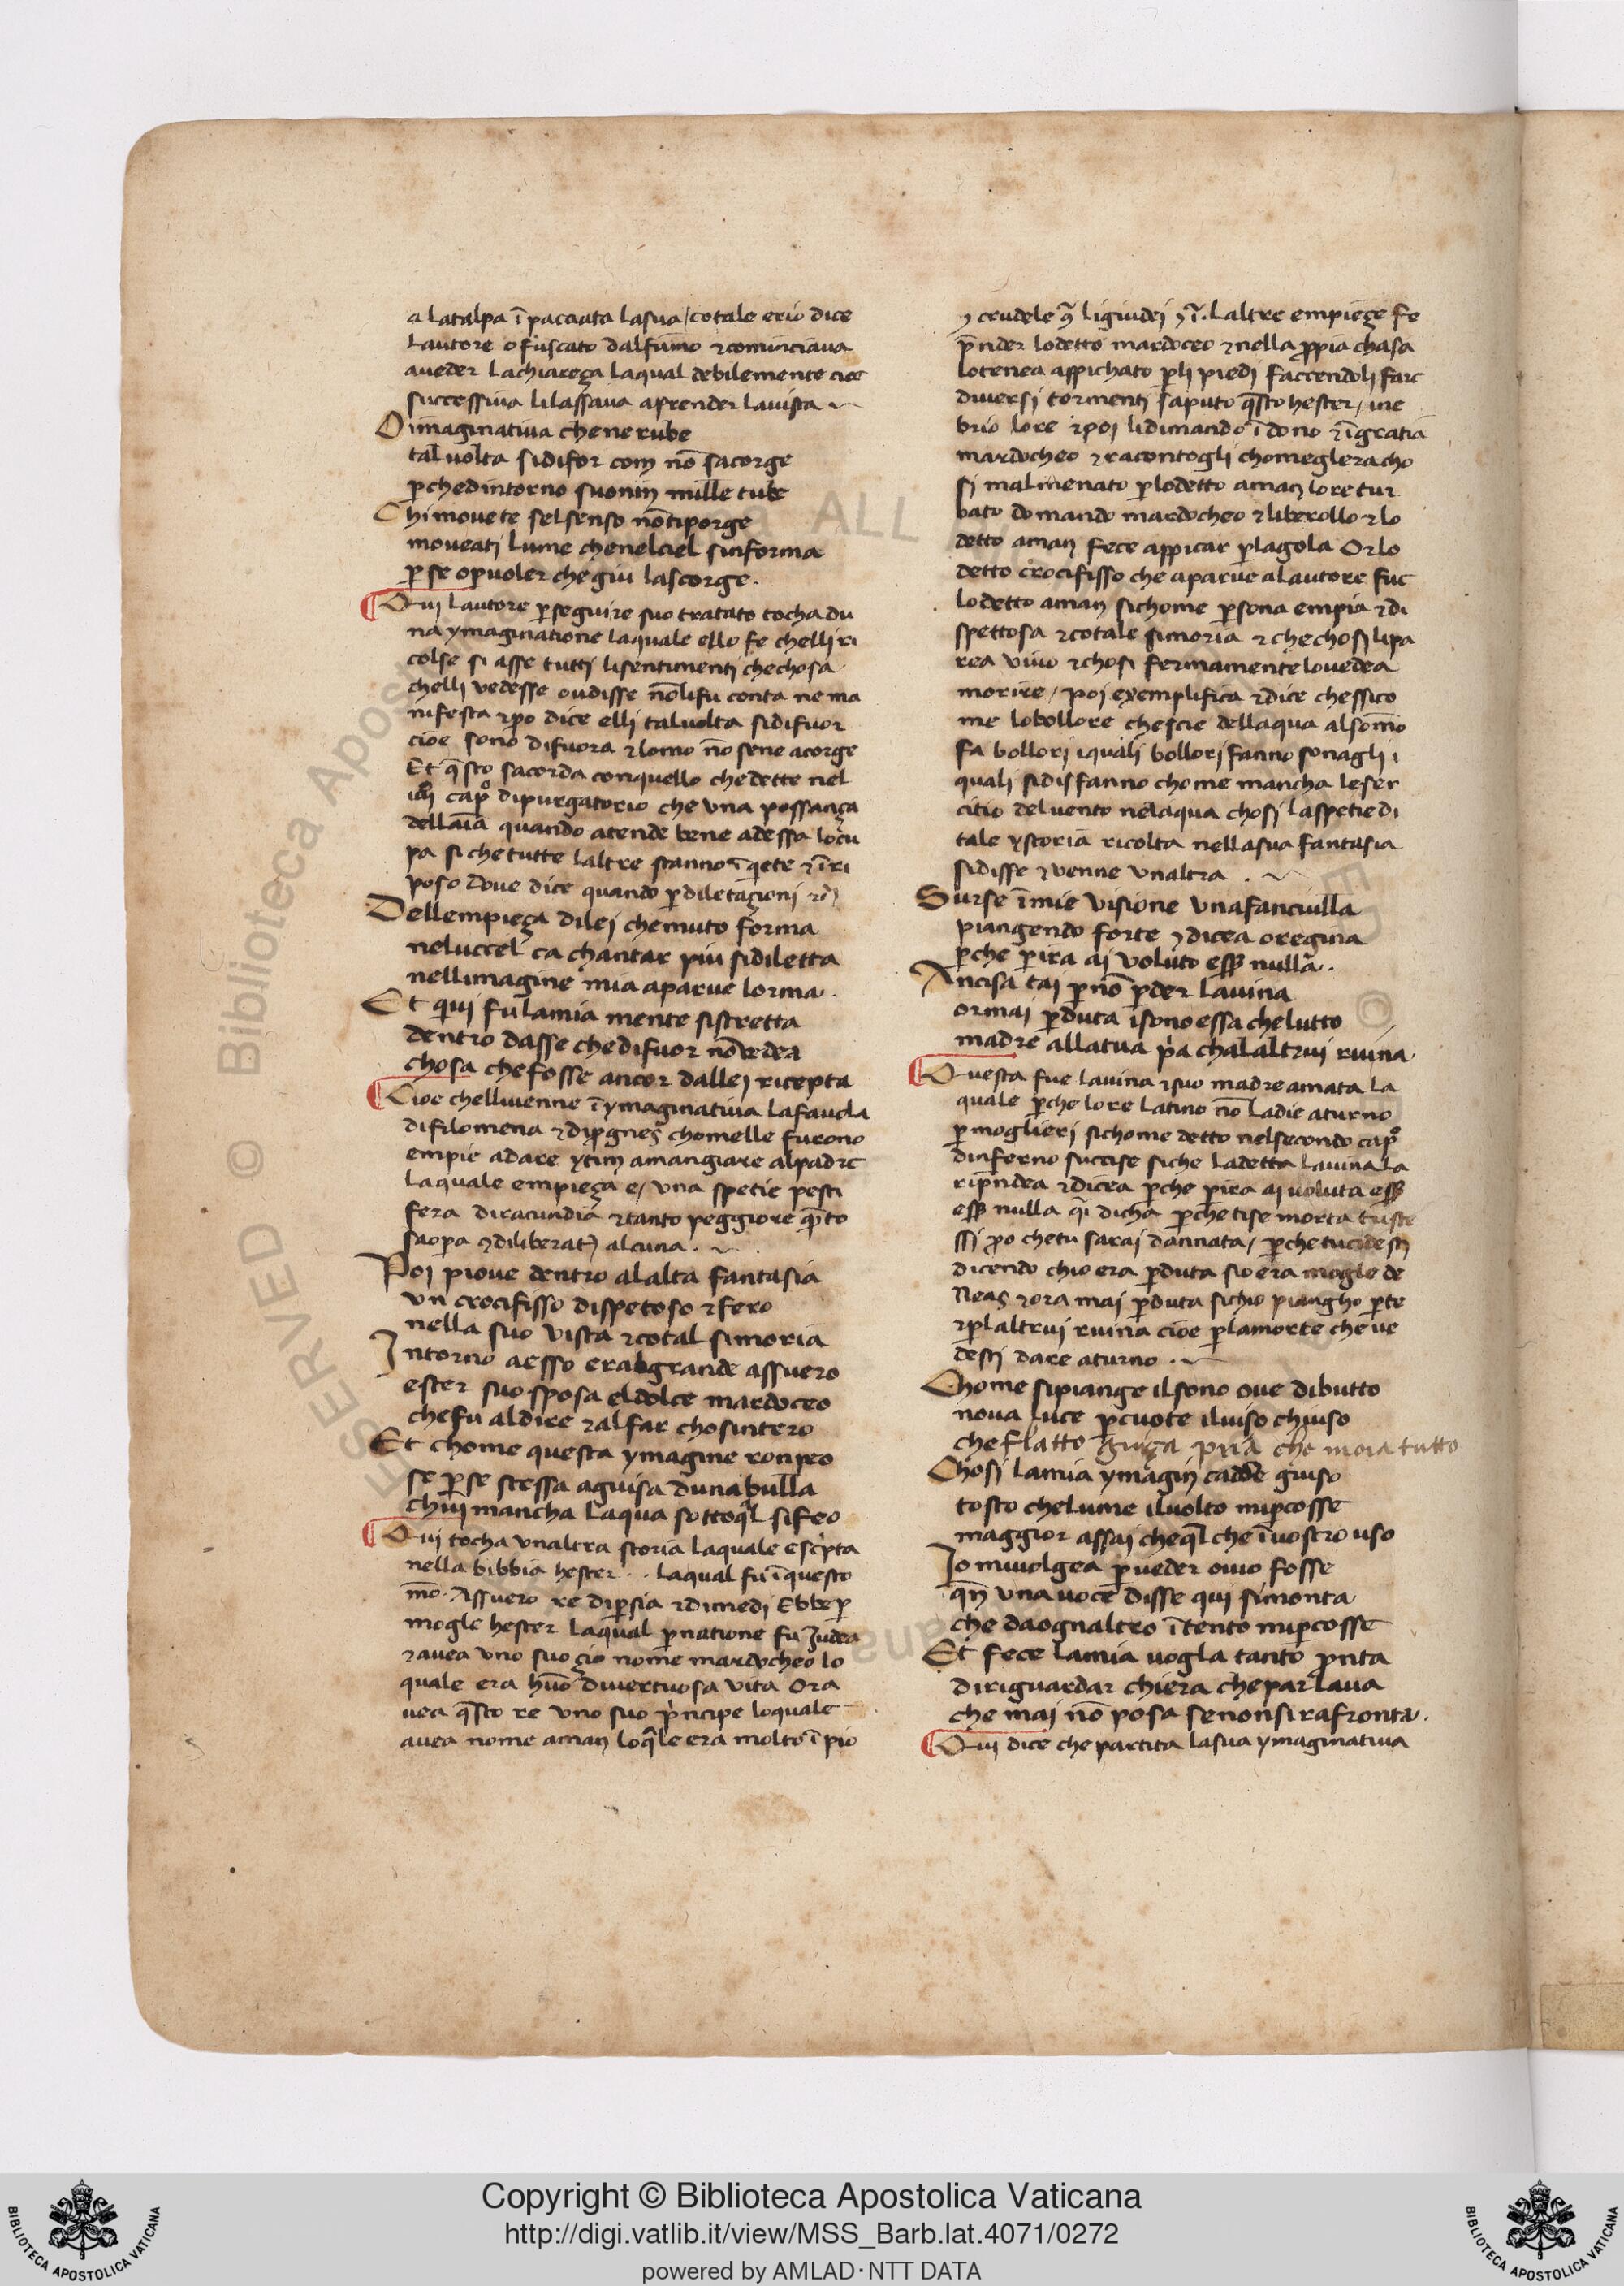 a latalpa ĩpacciata lasua / cotale erio dice
lautore ofuscato dalfumo ⁊cominciaua
aueder lachiareça laqual debilemente cioe
successiua lilassaua aprender lauista
O imaginatiua chenerube
tal uolta sidifor com nõ sacorge
ꝑchedintorno suonin mille tube
Chi moue te selsenso nõtiporge
moueati lume chenelciel sinforma
ꝑse oꝑuoler chegiu lascorge.
Qui lautore ꝑseguire suo tratato tocha du
na ymaginatione laquale ello fe chelli ri
colse si asse tutti lisentimenti chechosa
chelli vedesse oudisse nõlifu conta ne ma
nifesta ⁊ꝑo dice elli taluolta sidifuor
cioe sono difuora ⁊lomo nõ sene acorge
Et q̃sto sacorda conquello chedette nel
capº dipurgatorio che vna possança
dellaĩa quando atende bene adessa locu
pa si chetutte laltre stanno ĩ qete ⁊ ĩ ri
poso Doue dice quando ꝑdiletagioni
Dellempieça dilei chemuto forma
neluccel ca chantar piu sidiletta
nellimagine mia aparue lorma.
Et qui fu lamia mente sistretta
dentro dasse chedifuor nõuedea
chosa chefosse ancor dallei ricepta
Cioe chelliuenne ĩ ymaginatiua lafauola
difilomena ⁊dipgnes chomelle furono
empie adare ytim amangiare alpadre
laquale empieça e / vna spetie pesti
fera diracundia ⁊tanto peggiore q̃to
saopa alcuna.
Poi pioue dentro alalta fantasia
vn crocifisso dispetoso ⁊fero
nella suo vista ⁊cotal simoria
Intorno aesso eralgrande assuero
ester suo sposa eldolce mardoceo
chefu aldire ⁊alfar chosintero
Et chome questa ymagine ronpeo
se ꝑse stessa aguisa dunabulla
chui mancha laqua sottoq̃l sifeo
Qui tocha vnaltra storia laquale escipta
nella bibbia hester. laqual fu ĩ questo
mõ. Assuero re dipsia ⁊dimedi Ebbe ꝑ
mogle hester laqual ꝑnatione fu Judea
⁊auea vno suo çio nome mardocheo lo
quale era huõ diuertuosa vita Ora
uea q̃sto re vno suo p̃ncipe loquale
auea nome aman loq̃le era molto ĩpio
⁊ crudele ligiudei laltre empieçe fe
p̃nder lodetto mardoceo ⁊nella ꝓpia chasa
lotenea appichato ꝑli piedi faccendoli fare
diuersi tormenti saputo q̃sto hester / ine
brio lore ⁊poi lidimando ĩ dono ⁊ĩgratia
mardocheo ⁊racontogli chomeglera cho
si malmenato ꝑlodetto aman lore tur
bato domando mardocheo ⁊liberollo ⁊lo
detto aman fece appicar ꝑlagola Orlo
detto crocifisso che aparue alautore fue
lo detto aman sichome ꝑsona empia ⁊di
spettosa ⁊cotale simoria ⁊chechosi lipa
rea viuo ⁊chosi fermamente louedea
morire / poi exemplifica ⁊dice chessico
me lobollore chescie dellaqua alsomõ
fa bollori iquali bollori fanno sonagli i
quali sidisfanno chome mancha leser
citio deluento nelaqua chosi laspetie di
tale ystoria ricolta nellasua fantasia
sidisse ⁊uenne vnaltra.
Surse ĩmie visione vnafanciulla
piangendo forte ⁊dicea oregina
ꝑche ꝑira ai voluto esse nulla.
Ancisa tai ꝑnõ ꝑder lauina
ormai ꝑduta isonoessa chelutto
madre allatua pia chalaltrui ruina.
Questa fue lauina ⁊suo madre amata la
quale ꝑche lore latino nõ ladie aturno
ꝑmoglieri sichome detto nelsecondo capº
dinferno succise siche ladetta lauina la
ripndea ⁊dicea ꝑche ꝑira ai voluta esse
esse nulla q̃i dicha ꝑche tise morta triste
ssi ꝑo chetu sarai dannata / ꝑche tucidesti
dicendo chio era ꝑduta sio era mogle de
Neas ⁊ora mai ꝑduta sichio piangho ꝑte
⁊ꝑlaltrui ruina cioe ꝑlamorte che ue
desti dare aturno.
Chome sipiange ilsono oue dibutto
noua luce ꝑcuote iluiso chiuso
che flatto guiça pria che moia tutto
Chosi lamia ymagin cadde giuso
tosto chelume iluolto miꝑcosse
maggior assai cheq̃l che ĩ uostro uso
Io miuolgea ꝑueder ouio fosse
qñ vna uoce disse qui simonta
che daognaltro ĩtento miꝑcosse
Et fece lamia uogla tanto ꝓnta
diriguardar chiera cheparlaua
che mai nõ posa senonsirafronta.
Qui dice che partita lasua ymaginatiua
Copyright © Biblioteca Apostolica Vaticana
http://digi.vatlib.it/view/MSS_Barb.lat.4071/0272
powered by AMLAD·NTT DATA
BIBLIOTECA APOSTOLICA VATICANA
BIBLIOTECA APOSTOLICA VATICANA